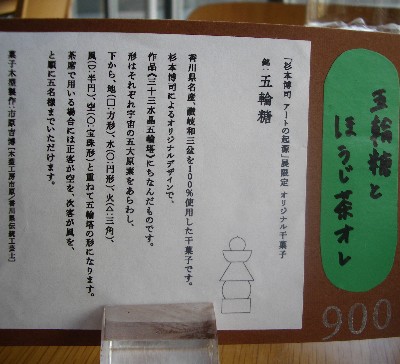 五輪糖と
ほうじ茶オレ
900
「杉本博司 アートの起源」展限定 オリジナル干菓子
銘：五輪糖
香川県名産、讃岐和三盆を100％使用した干菓子です。
杉本博司によるオリジナルデザインで、
作品《三十三水晶五輪塔》にちなんだものです。
形はそれぞれ宇宙の五大原素をあらわし、
下から、地(□：方形)、水(○：円形)、火(△：三角)、
風(◠：半円)、空(◊：宝珠形)と重ねて五輪塔の形になります。
茶席で用いる場合には正客が空を、次客が風を、
と順に五名様までいただけます。
菓子木型製作：市原吉博(木型工房市原/香川県伝統工芸士)